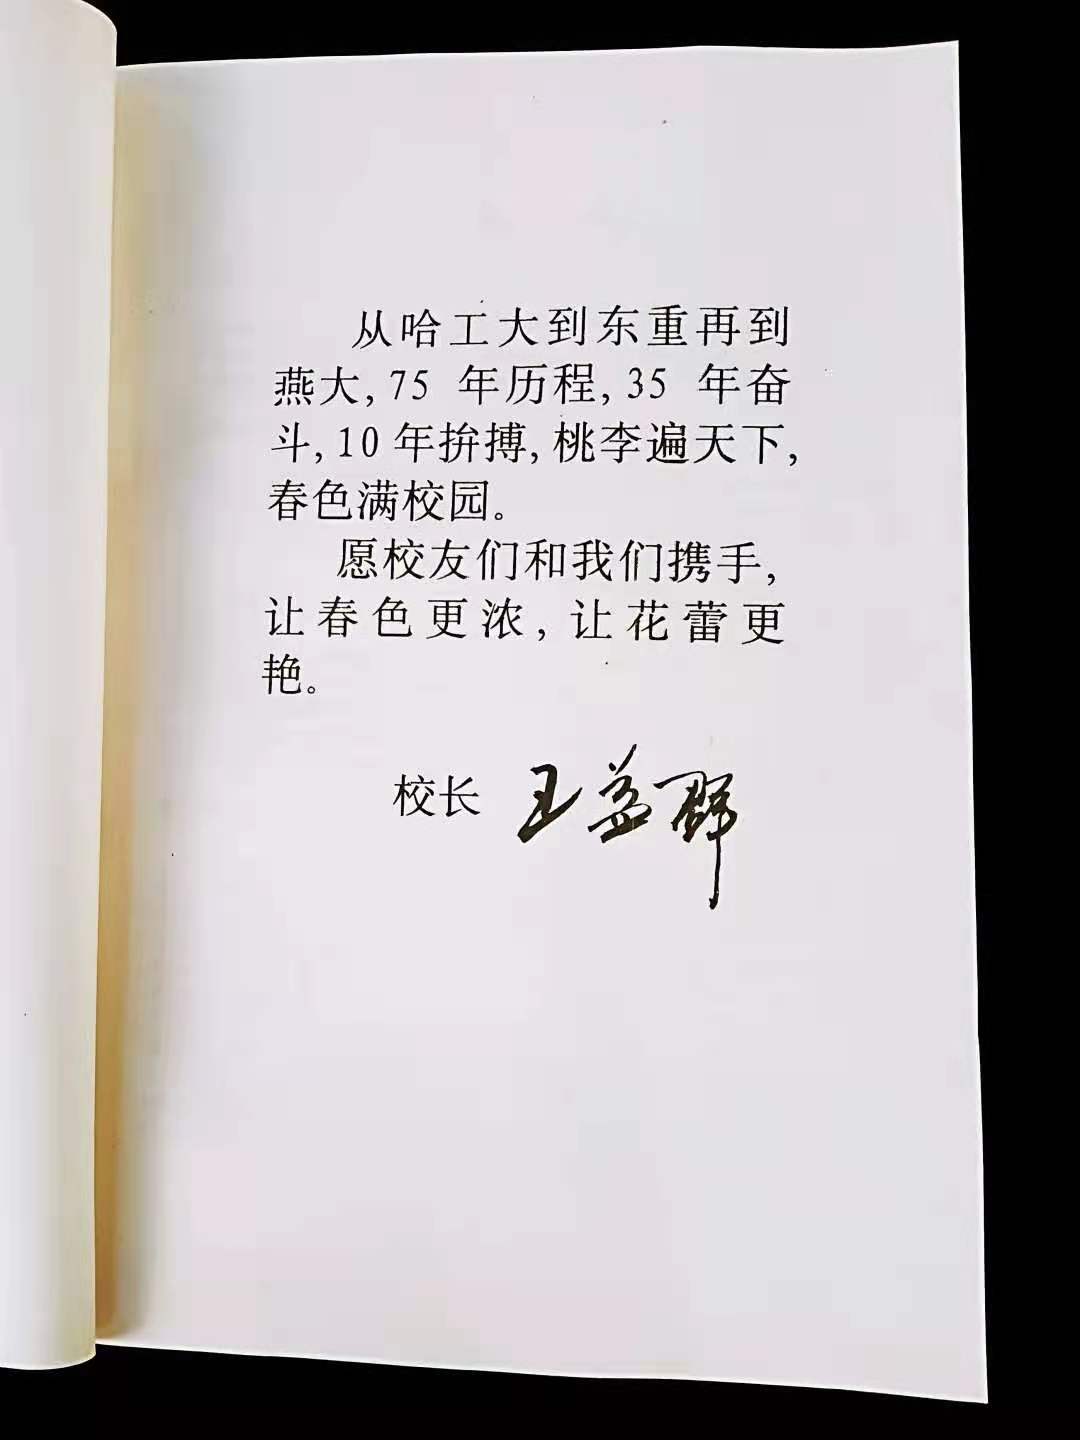 从哈工大到东重再到
燕大,75 年历程,35 年奋
斗,10年拚搏,桃李遍天下,
春色满校园。
愿校友们和我们携手,
让春色更浓,让花蕾更
艳。
校长 王益群